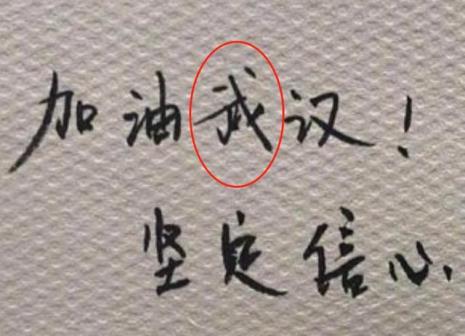 加油武汉！
坚定信心.